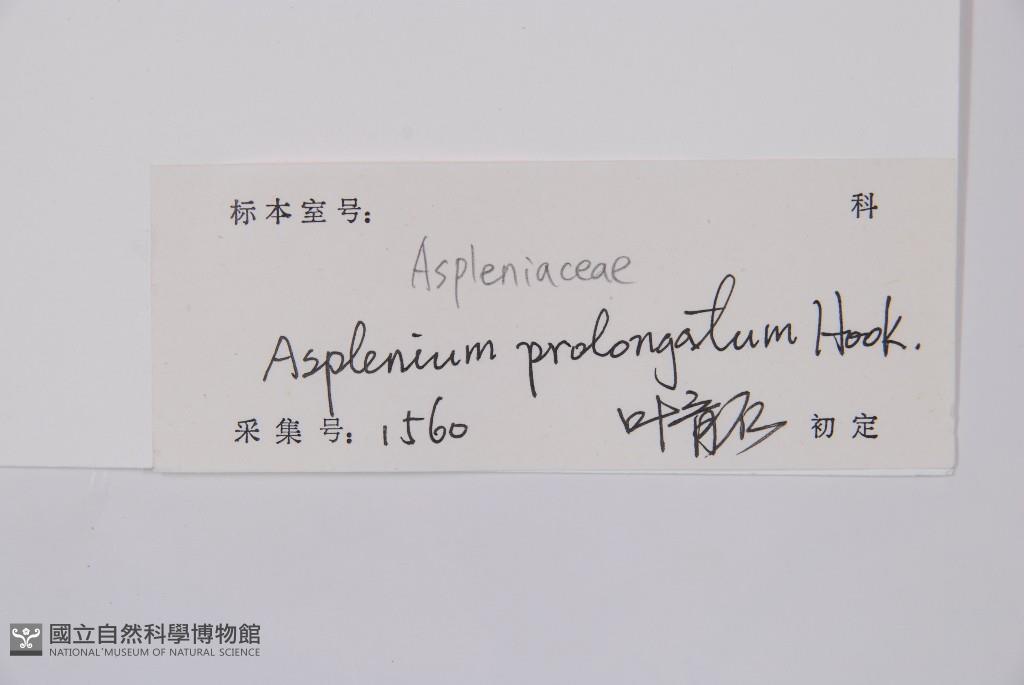 标本室号: 科
Aspleniaceae
Asplenium prolongatum Hook.
采集号: 1560 叶育石 初定
國立自然科學博物館
NATIONAL MUSEUM OF NATURAL SCIENCE